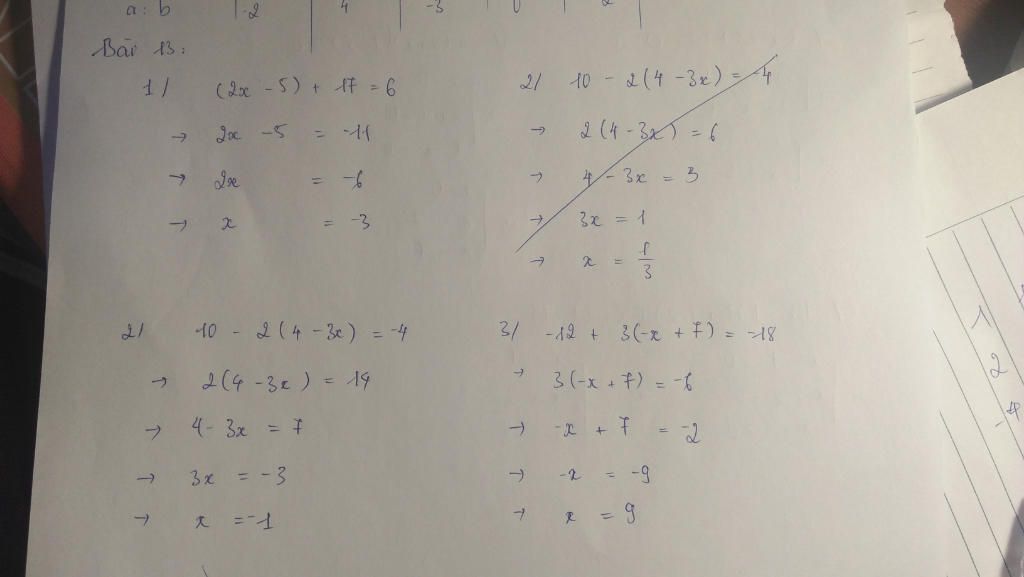 a: b -2 4 -3 0 2
Bài 13:
1/ (2x - 5) + 17 = 6
→ 2x - 5 = -11
→ 2x = -6
→ x = -3
2/ 10 - 2(4 - 3x) = -4
→ 2(4 - 3x) = 6
→ 4 - 3x = 3
→ 3x = 1
→ x = 1/3
2/ 10 - 2(4 - 3x) = -4
→ 2(4 - 3x) = 14
→ 4 - 3x = 7
→ 3x = -3
→ x = -1
3/ -12 + 3(-x + 7) = -18
→ 3(-x + 7) = -6
→ -x + 7 = -2
→ -x = -9
→ x = 9
1
2